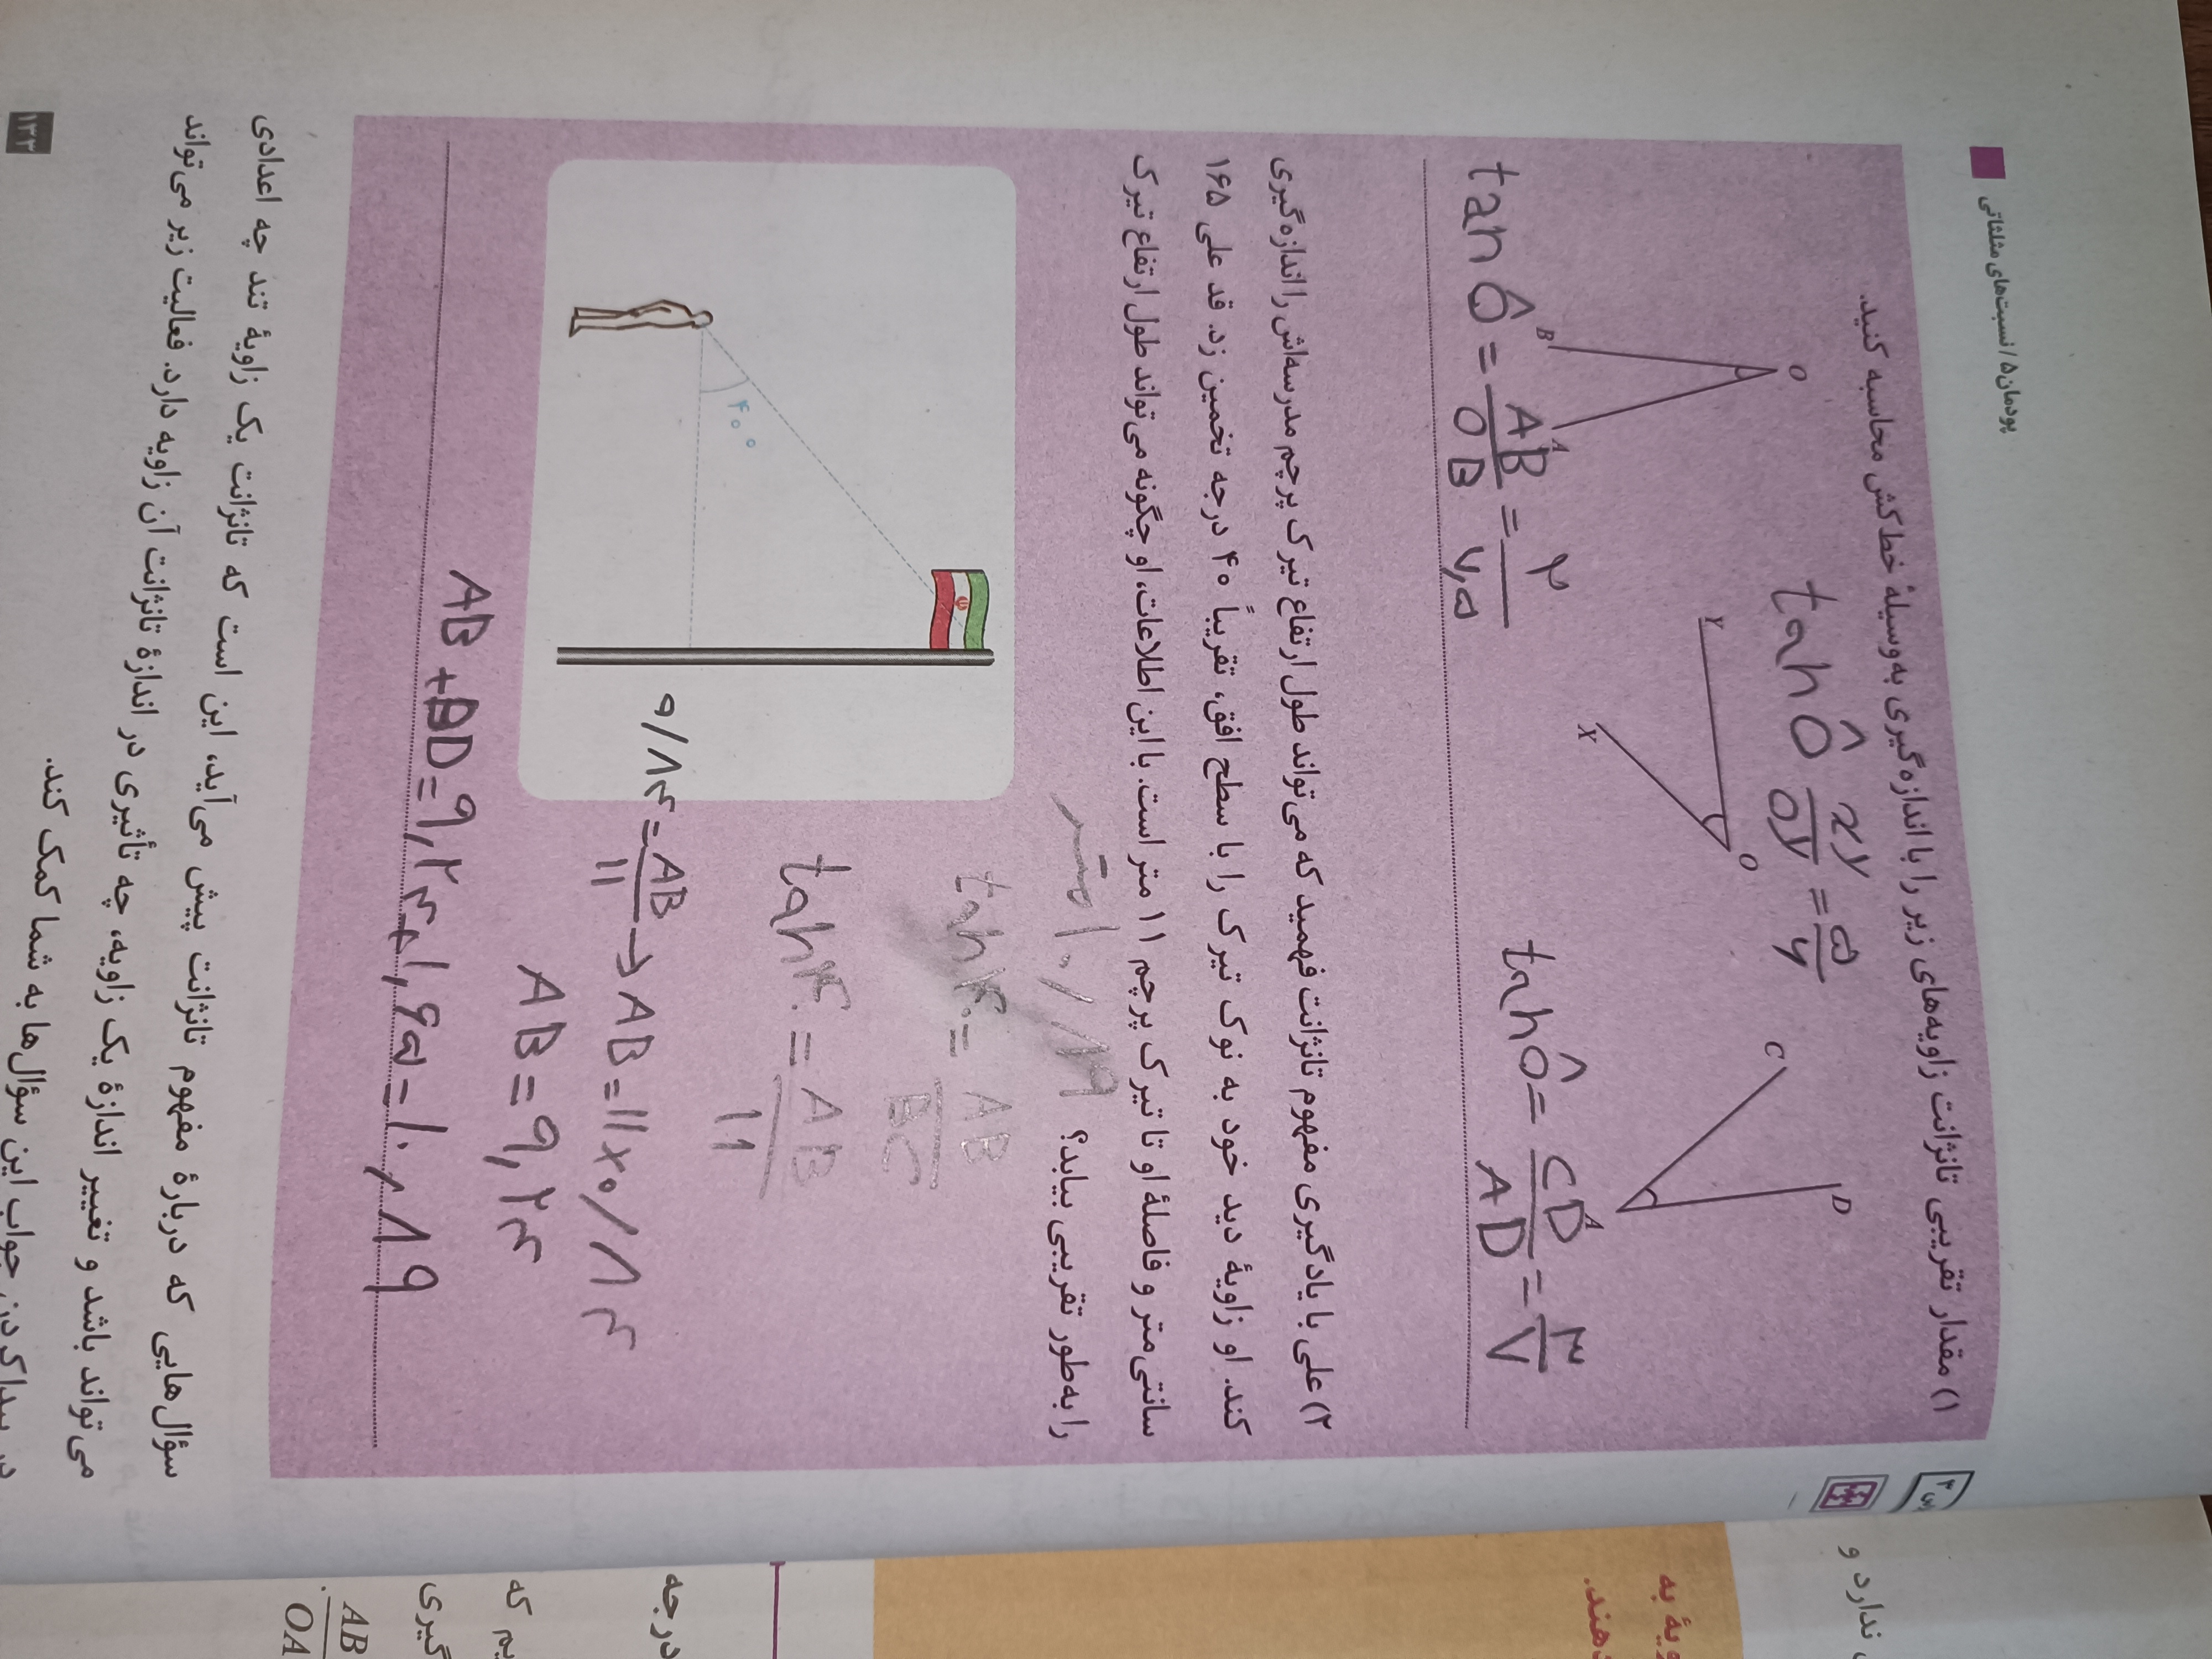 پودمان ۵ / نسبت‌های مثلثاتی
۱) مقدار تقریبی تانژانت زاویه‌های زیر را با اندازه‌گیری به‌وسیلهٔ خط‌کش محاسبه کنید.
O
B
A
tan Ô = AB / OB = ۲ / ۷,۵
Y
X
O
tan Ô xy / oy = ۵ / ۶
C
D
A
tan Ô = CD / AD = ۳ / ۷
۲) علی با یادگیری مفهوم تانژانت فهمید که می‌تواند طول ارتفاع تیرک پرچم مدرسه‌اش را اندازه‌گیری
کند. او زاویهٔ دید خود به نوک تیرک را با سطح افق، تقریباً ۴۰ درجه تخمین زد. قد علی ۱۶۵
سانتی‌متر و فاصلهٔ او تا تیرک پرچم ۱۱ متر است. با این اطلاعات، او چگونه می‌تواند طول ارتفاع تیرک
را به‌طور تقریبی بیابد؟
۱۰/۸۹ متر
۴۰°
tan ۴۰ = AB / BC
tan ۴۰ = AB / ۱۱
۰/۸۴ = AB / ۱۱ → AB = ۱۱ × ۰/۸۴
AB = ۹,۲۴
AB + BD = ۹,۲۴ + ۱,۶۵ = ۱۰,۸۹
سؤال‌هایی که دربارهٔ مفهوم تانژانت پیش می‌آید، این است که تانژانت یک زاویهٔ تند چه اعدادی
می‌تواند باشد و تغییر اندازهٔ یک زاویه، چه تأثیری در اندازهٔ تانژانت آن زاویه دارد. فعالیت زیر می‌تواند
در پیدا کردن جواب این سؤال‌ها به شما کمک کند.
۱۳۳
ندارد و
ویهٔ به
دهند.
درجه
یم که
گیری
AB / OA